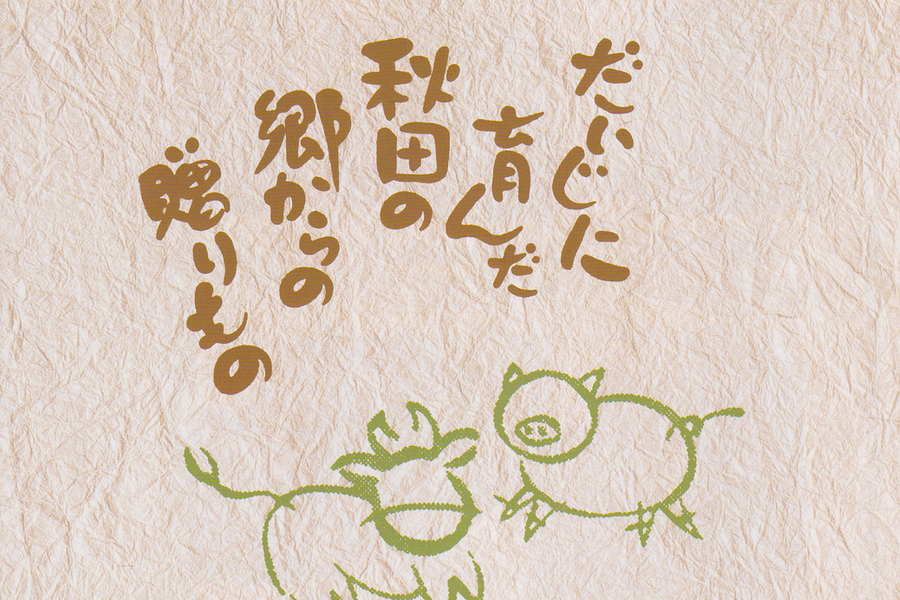 だいじに
育んだ
秋田の
郷からの
贈りもの